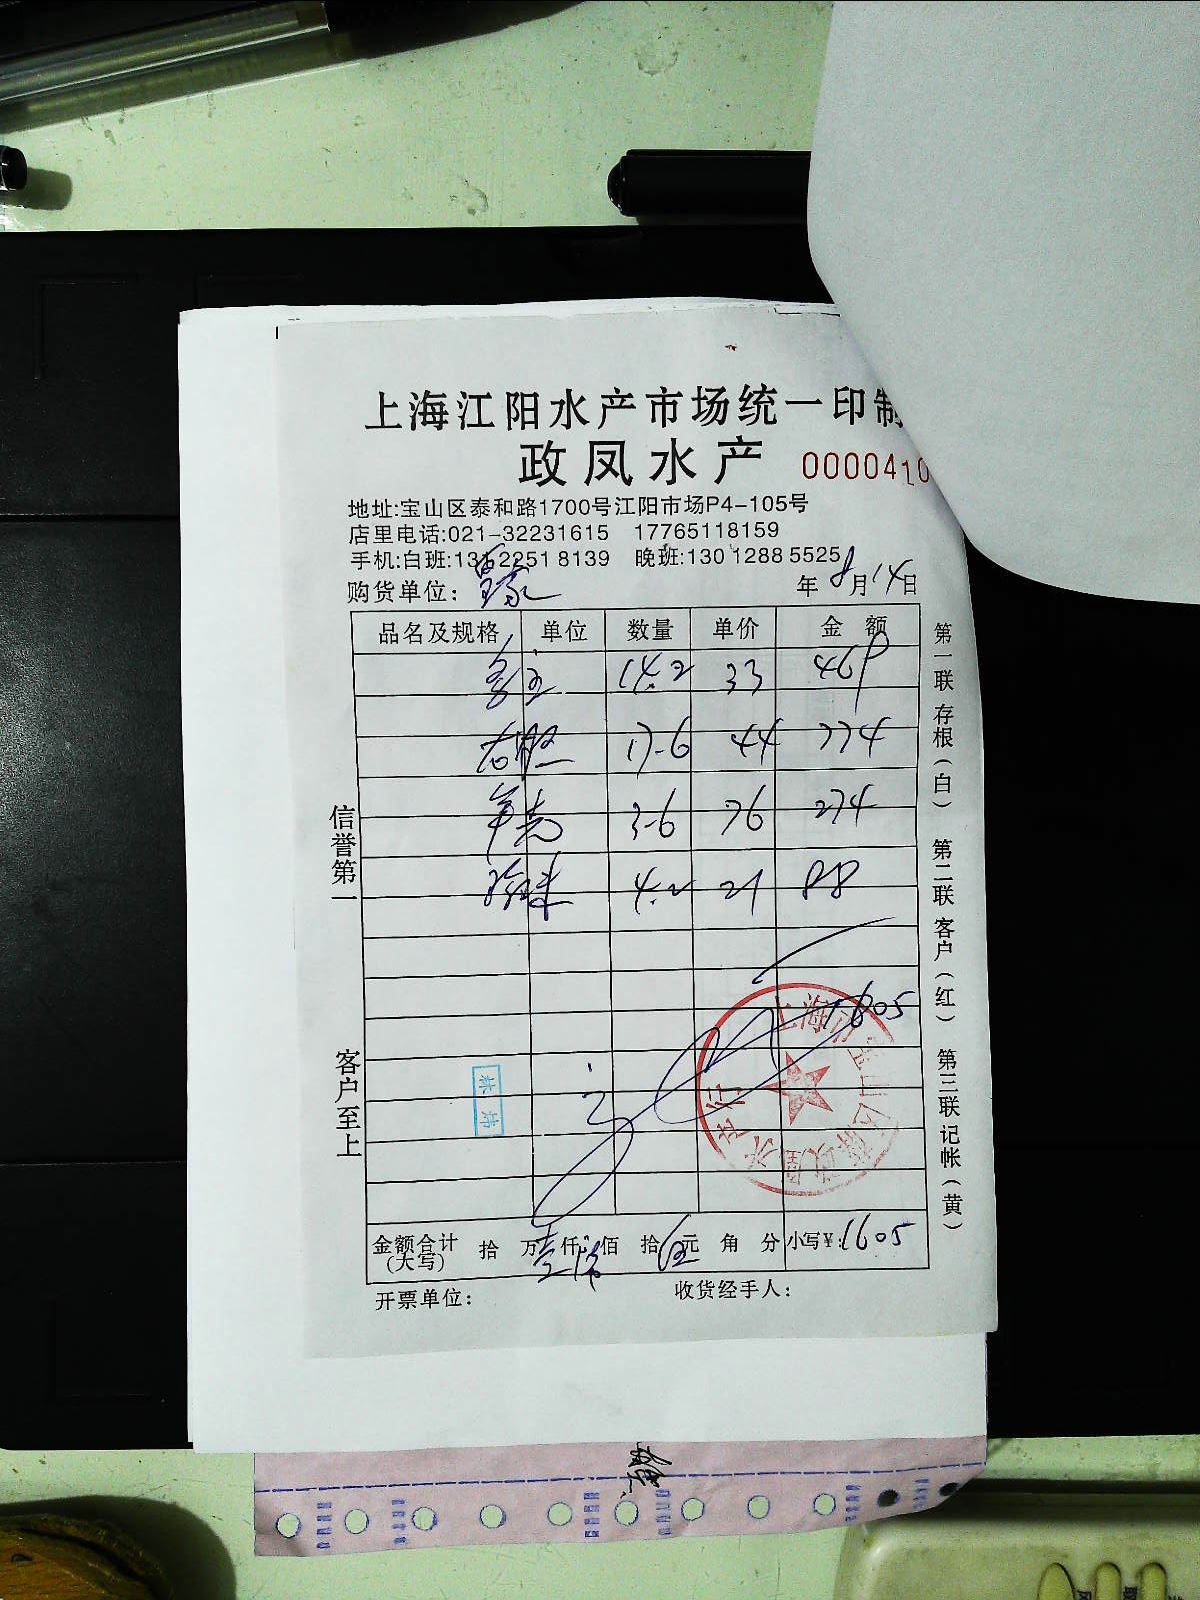 上海江阳水产市场统一印制
政凤水产 0000410
地址:宝山区泰和路1700号江阳市场P4-105号
店里电话:021-32231615 17765118159
手机:白班:131 2251 8139 晚班:130 1288 5525
购货单位: 年 8月14日
品名及规格 单位 数量 单价 金额
14.2 33 469
17-6 44 774
3-6 76 274
4.2 21 88
1605
金额合计(大写) 拾 万 壹 仟 陆 佰 拾 伍 元 角 分 小写¥:1605
开票单位: 收货经手人:
信誉第一
客户至上
第一联存根(白)
第二联客户(红)
第三联记帐(黄)